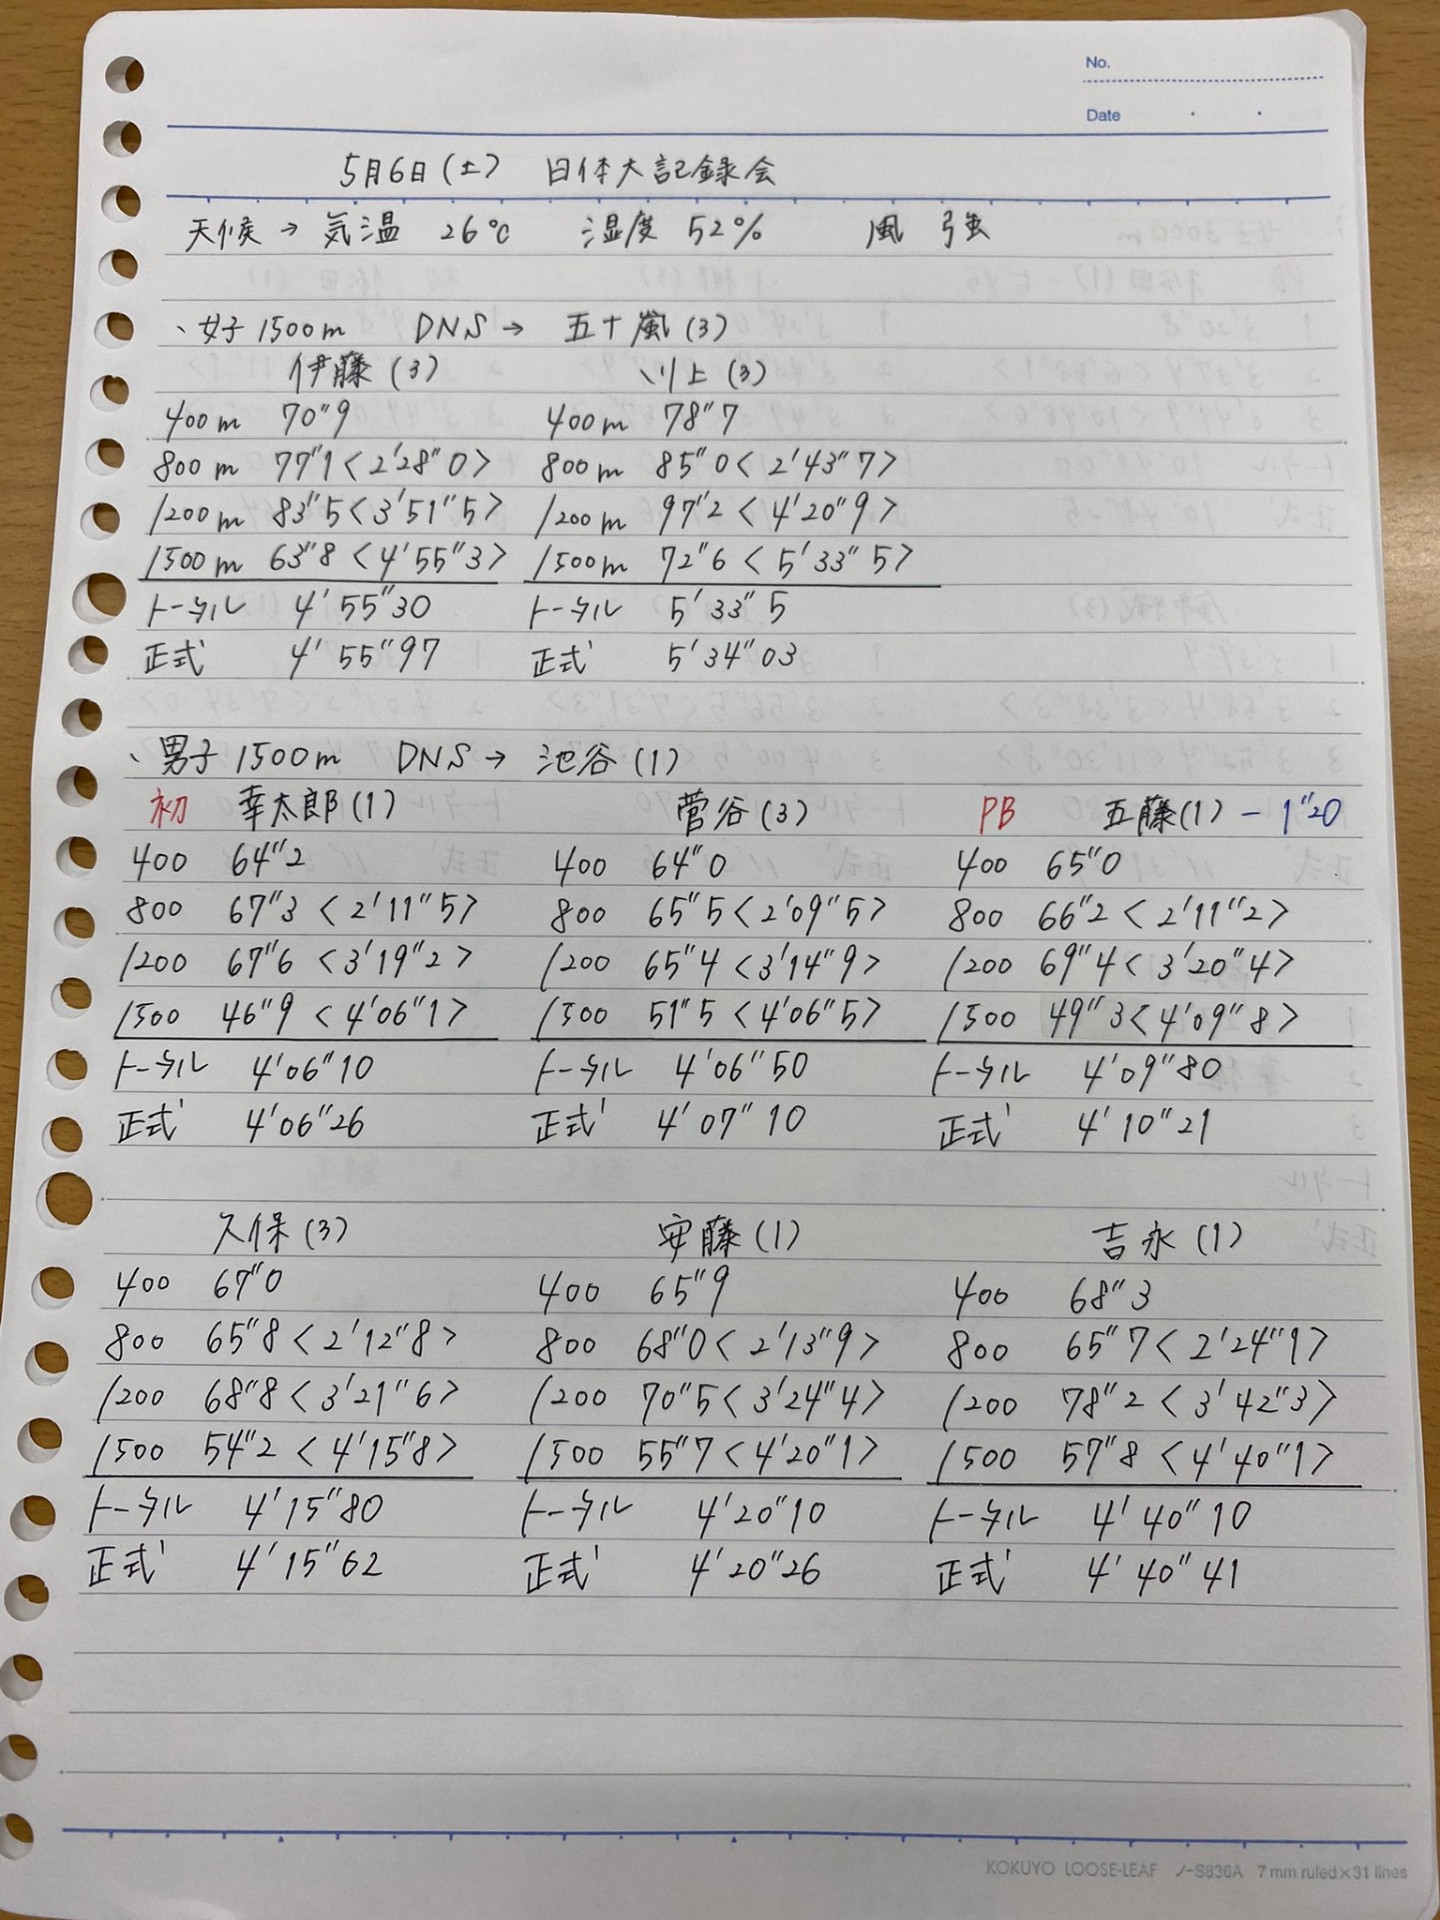 No.
Date
5月6日(土) 日体大記録会
天候→気温 26℃ 湿度 52% 風 強
、女子1500m DNS→ 五十嵐(3)
伊藤(3) 川上(3)
400m 70"9 400m 78"7
800m 77"1<2'28"0> 800m 85"0<2'43"7>
1200m 83"5<3'51"5> 1200m 97"2<4'20"9>
1500m 63"8<4'55"3> 1500m 72"6<5'33"5>
トータル 4'55"30 トータル 5'33"5
正式 4'55"97 正式 5'34"03
、男子1500m DNS→ 池谷(1)
初 幸太郎(1) 菅谷(3) PB 五藤(1) -1"20
400 64"2 400 64"0 400 65"0
800 67"3<2'11"5> 800 65"5<2'09"5> 800 66"2<2'11"2>
1200 67"6<3'19"2> 1200 65"4<3'14"9> 1200 69"4<3'20"4>
1500 46"9<4'06"1> 1500 51"5<4'06"5> 1500 49"3<4'09"8>
トータル 4'06"10 トータル 4'06"50 トータル 4'09"80
正式 4'06"26 正式 4'07"10 正式 4'10"21
久保(3) 安藤(1) 吉永(1)
400 67"0 400 65"9 400 68"3
800 65"8<2'12"8> 800 68"0<2'13"9> 800 65"7<2'24"1>
1200 68"8<3'21"6> 1200 70"5<3'24"4> 1200 78"2<3'42"3>
1500 54"2<4'15"8> 1500 55"7<4'20"1> 1500 57"8<4'40"1>
トータル 4'15"80 トータル 4'20"10 トータル 4'40"10
正式 4'15"62 正式 4'20"26 正式 4'40"41
KOKUYO LOOSE-LEAF ノ-S836A 7 mm ruled×31 lines